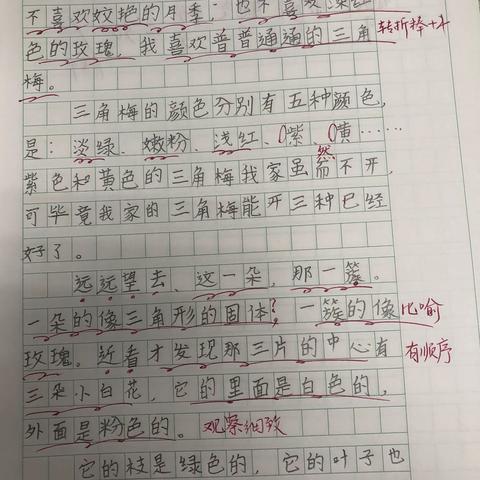 不喜欢姣艳的月季，也不喜欢深红
色的玫瑰，我喜欢普普通通的三角 转折棒++
梅。
三角梅的颜色分别有五种颜色，
是：淡绿、嫩粉、浅红、紫、黄……
然
紫色和黄色的三角梅我家虽而不开，
可毕竟我家的三角梅能开三种已经
好了。
远远望去、这一朵，那一簇。
一朵的像三角形的固体？，一簇的像 比喻
玫瑰。近看才发现那三片的中心有 有顺序
三朵小白花，它的里面是白色的，
外面是粉色的。 观察细致
它的枝是绿色的，它的叶子也